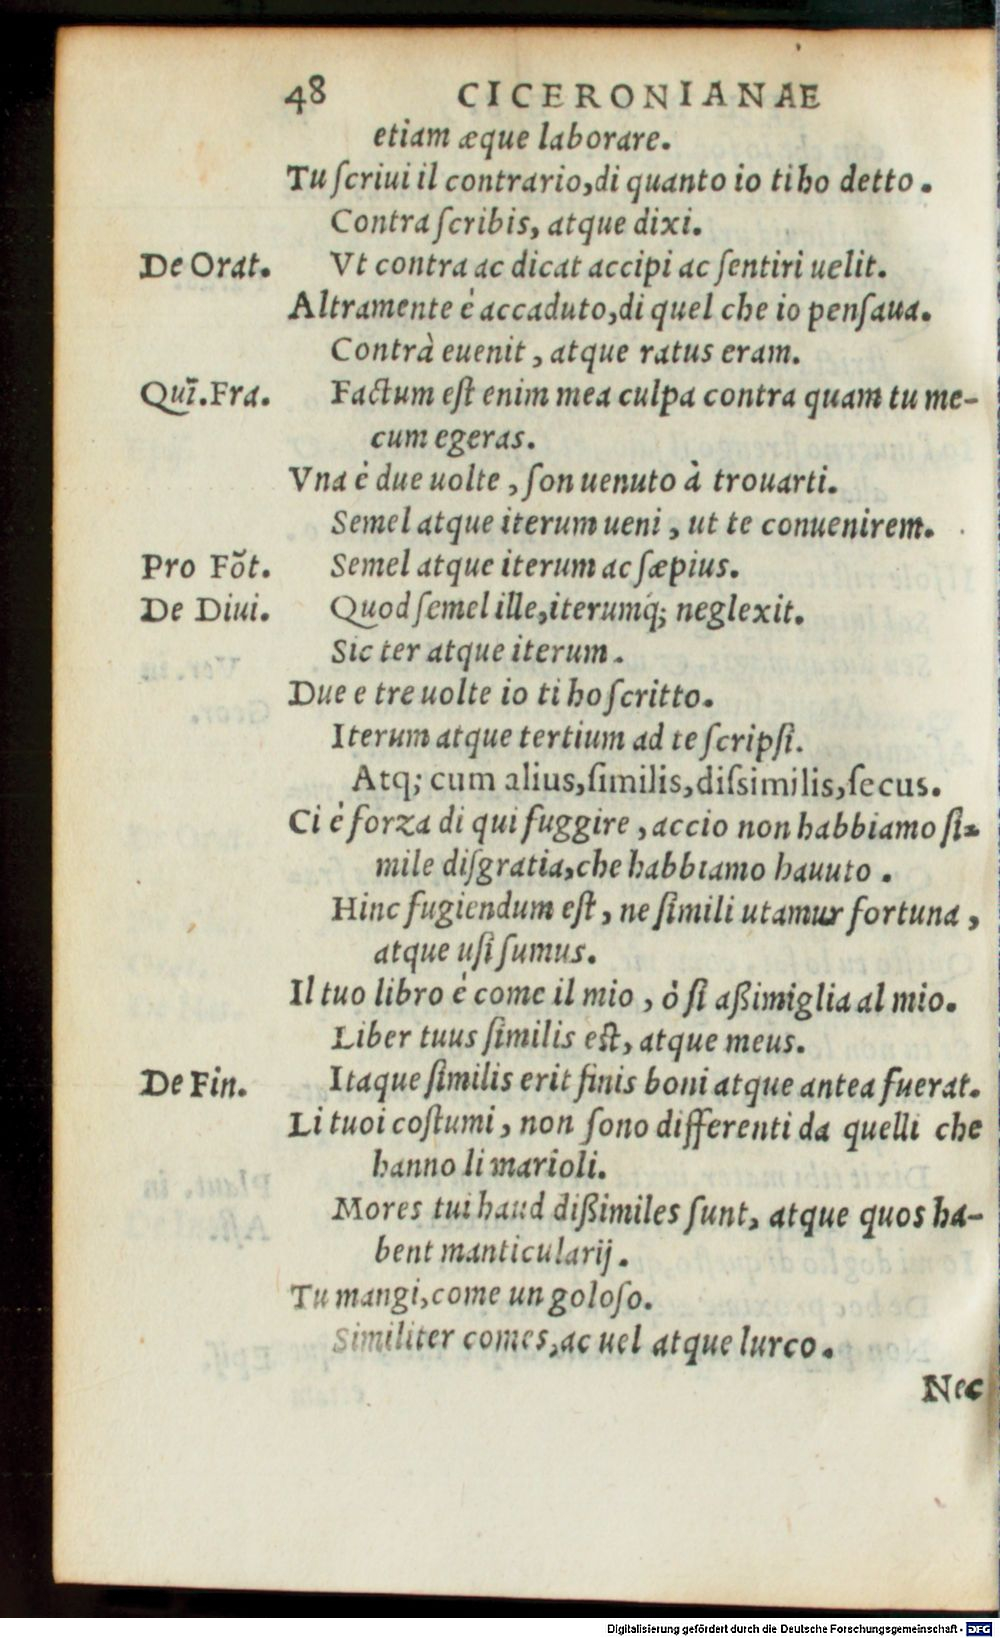 48 CICERONIANAE
etiam æque laborare.
Tu ſcriui il contrario, di quanto io ti ho detto.
Contra ſcribis, atque dixi.
De Orat. Vt contra ac dicat accipi ac ſentiri uelit.
Altramente è accaduto, di quel che io penſaua.
Contrà euenit, atque ratus eram.
Quī. Fra. Factum eſt enim mea culpa contra quam tu me-
cum egeras.
Vna è due uolte, ſon uenuto à trouarti.
Semel atque iterum ueni, ut te conuenirem.
Pro Fōt. Semel atque iterum ac ſæpius.
De Diui. Quod ſemel ille, iterumq́; neglexit.
Sic ter atque iterum.
Due e tre uolte io ti ho ſcritto.
Iterum atque tertium ad te ſcripſi.
Atq; cum alius, ſimilis, diſsimilis, ſecus.
Ci è forza di qui fuggire, accio non habbiamo ſi-
mile diſgratia, che habbiamo hauuto.
Hinc fugiendum eſt, ne ſimili utamur fortuna,
atque uſi ſumus.
Il tuo libro è come il mio, ò ſi aßimiglia al mio.
Liber tuus ſimilis eſt, atque meus.
De Fin. Itaque ſimilis erit finis boni atque antea fuerat.
Li tuoi coſtumi, non ſono differenti da quelli che
hanno li marioli.
Mores tui haud dißimiles ſunt, atque quos ha-
bent manticularij.
Tu mangi, come un goloſo.
Similiter comes, ac uel atque lurco.
Nec
Digitalisierung gefördert durch die Deutsche Forschungsgemeinschaft - DFG